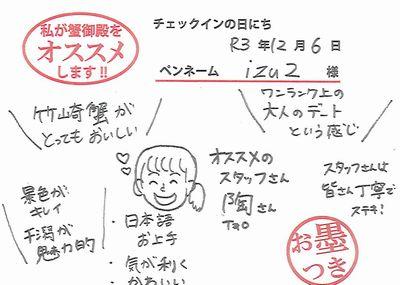 私が蟹御殿を
オススメ
します!!
チェックインの日にち
R3年12月6日
ペンネーム izu2 様
竹崎蟹が
とってもおいしい
ワンランク上の
大人のデート
という感じ
オススメの
スタッフさん
陶さん
Tao
スタッフさんは
皆さん丁寧で
ステキ!
景色が
キレイ
干潟が
魅力的
・日本語
お上手
・気が利く
かわいい
お墨
つき